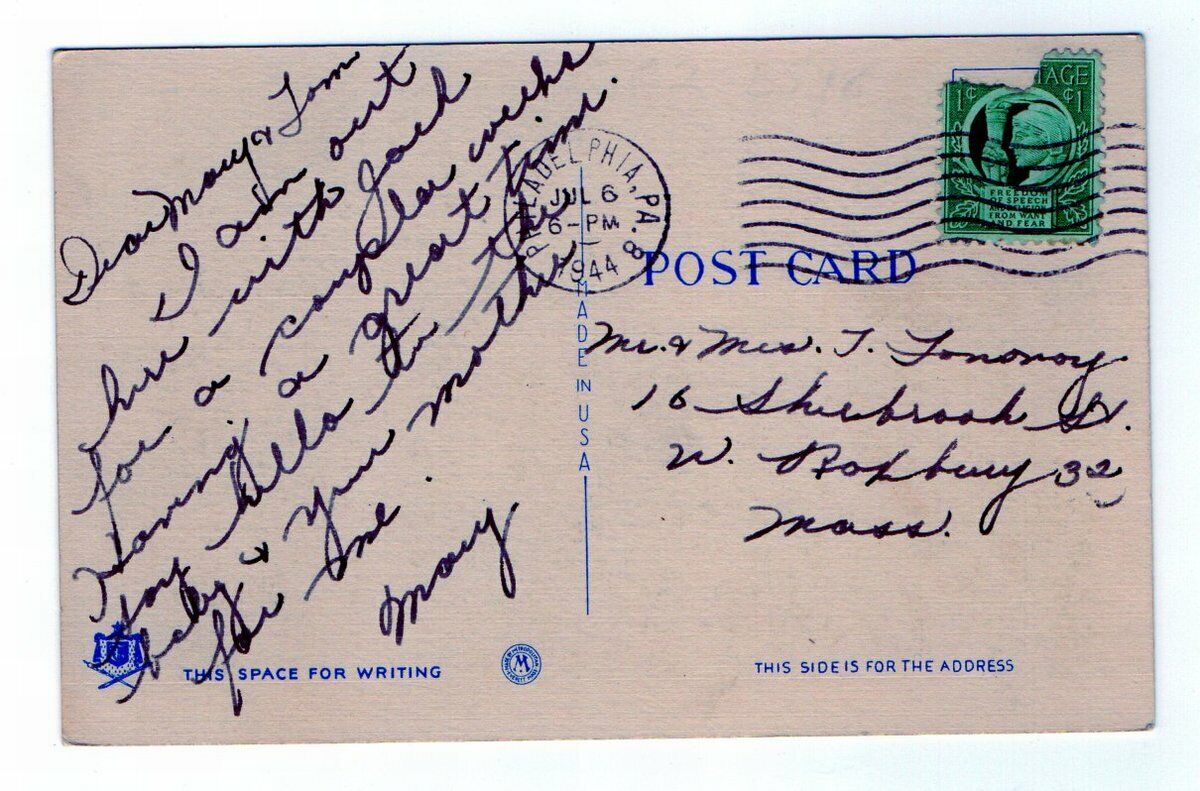 Dear Mary & Tom
I am out
here with Jack
for a couple of weeks
Having a great time.
Say hello to the
baby & your mother
for me.
Mary
THIS SPACE FOR WRITING
PHILADELPHIA, PA. 8
JUL 6
6-PM
1944
MADE IN USA
POST CARD
TAGE
1¢ ¢1
FREEDOM
OF SPEECH
AND RELIGION
FROM WANT
AND FEAR
Mr. & Mrs. T.
16 Sherbrook St.
W. Roxbury 32
Mass.
M
THIS SIDE IS FOR THE ADDRESS